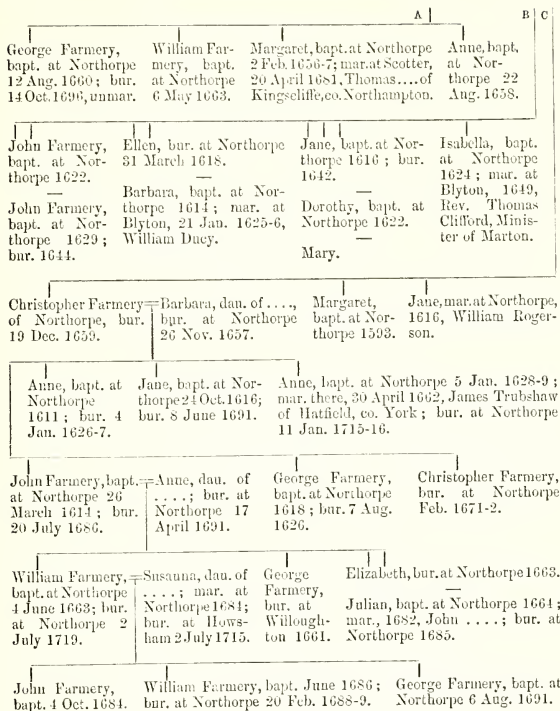 A B C
George Farmery,
bapt. at Northorpe
12 Aug. 1660; bur.
14 Oct. 1696, unmar.
William Far-
mery, bapt.
at Northorpe
6 May 1663.
Margaret, bapt. at Northorpe
2 Feb. 1656-7; mar. at Scotter,
20 April 1681, Thomas .... of
Kingscliffe, co. Northampton.
Anne, bapt.
at Nor-
thorpe 22
Aug. 1658.
John Farmery,
bapt. at Nor-
thorpe 1622.
—
John Farmery,
bapt. at Nor-
thorpe 1629;
bur. 1644.
Ellen, bur. at Northorpe
31 March 1618.
—
Barbara, bapt. at Nor-
thorpe 1614; mar. at
Blyton, 21 Jan. 1625-6,
William Ducy.
Jane, bapt. at Nor-
thorpe 1616; bur.
1642.
—
Dorothy, bapt. at
Northorpe 1622.
—
Mary.
Isabella, bapt.
at Northorpe
1624; mar. at
Blyton, 1649,
Rev. Thomas
Clifford, Minis-
ter of Marton.
Christopher Farmery=
of Northorpe, bur.
19 Dec. 1659.
Barbara, dau. of ....,
bur. at Northorpe
26 Nov. 1657.
Margaret,
bapt. at Nor-
thorpe 1593.
Jane, mar. at Northorpe,
1616, William Roger-
son.
Anne, bapt. at
Northorpe
1611; bur. 4
Jan. 1626-7.
Jane, bapt. at Nor-
thorpe 24 Oct. 1616;
bur. 8 June 1691.
Anne, bapt. at Northorpe 5 Jan. 1628-9;
mar. there, 30 April 1662, James Trubshaw
of Hatfield, co. York; bur. at Northorpe
11 Jan. 1715-16.
John Farmery, bapt.=
at Northorpe 26
March 1614; bur.
20 July 1686.
Anne, dau. of
....; bur. at
Northorpe 17
April 1691.
George Farmery,
bapt. at Northorpe
1618; bur. 7 Aug.
1626.
Christopher Farmery,
bur. at Northorpe
Feb. 1671-2.
William Farmery,=
bapt. at Northorpe
4 June 1663; bur.
at Northorpe 2
July 1719.
Susanna, dau. of
....; mar. at
Northorpe 1684;
bur. at Hows-
ham 2 July 1715.
George
Farmery,
bur. at
Willough-
ton 1661.
Elizabeth, bur. at Northorpe 1663.
—
Julian, bapt. at Northorpe 1664;
mar., 1682, John ....; bur. at
Northorpe 1685.
John Farmery,
bapt. 4 Oct. 1684.
William Farmery, bapt. June 1686;
bur. at Northorpe 20 Feb. 1688-9.
George Farmery, bapt. at
Northorpe 6 Aug. 1691.